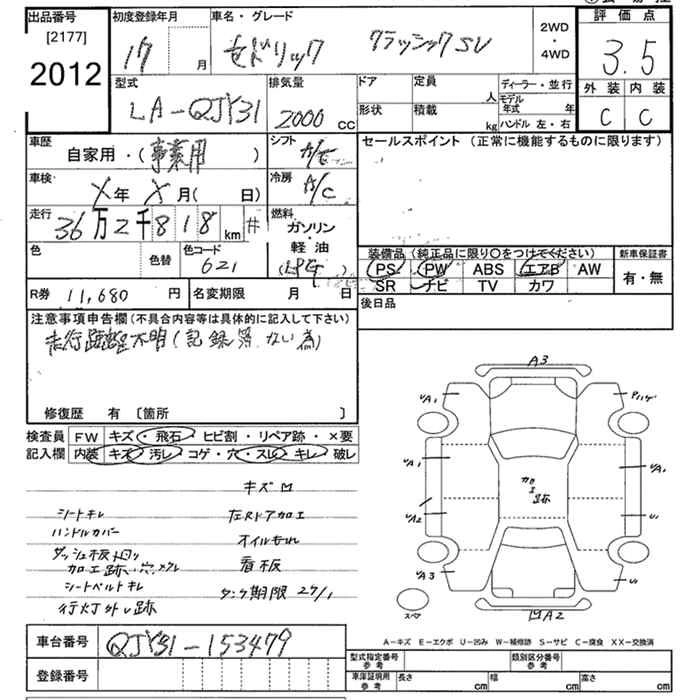 出品番号
[2177]
2012
初度登録年月
17 月
車名・グレード
セドリック クラッシックSV
2WD
・
4WD
評価点
3.5
外装 内装
C C
型式
LA-QJY31
排気量
2000 cc
ドア
定員 人
形状
積載 kg
ディーラー・並行
モデル年式 年
ハンドル 左・右
車歴
自家用・(事業用)
シフト
冷房
A/C
車検
X年 X月( 日)
走行
36万2千818 km
燃料
ガソリン
軽・油
(LPG)
色
色替
色コード
621
セールスポイント (正常に機能するものに限ります)
装備品 (純正品に限り○をつけてください)
PS PW ABS エアB AW
SR ナビ TV カワ
新車保証書
有・無
R券 11,680 円
名変期限 月 日
後日品
注意事項申告欄(不具合内容等は具体的に記入して下さい)
走行距離不明(記録簿ない為)
修復歴 有 〔箇所 〕
検査員記入欄
FW キズ・飛石・ヒビ割・リペア跡・×要
内装 キズ・汚レ・コゲ・穴・スレ・キレ・破レ
キズ凹
シートキレ 左Rドア加工
ハンドルカバー オイルもれ
ダッシュ板回り 看板
加工跡・穴
シートベルトキレ タンク期限 27/1
行灯外し跡
A3
A1
A1
A2
A3
A1
U1
U1
凹A2
加工跡
スペア
A-キズ E-エクボ U-凹み W-補修跡 S-サビ C-腐食 XX-交換済
車台番号 QJY31-153479
登録番号
型式指定番号 参考
類別区分番号 参考
車庫証明用 参考 長さ cm 幅 cm 高さ cm